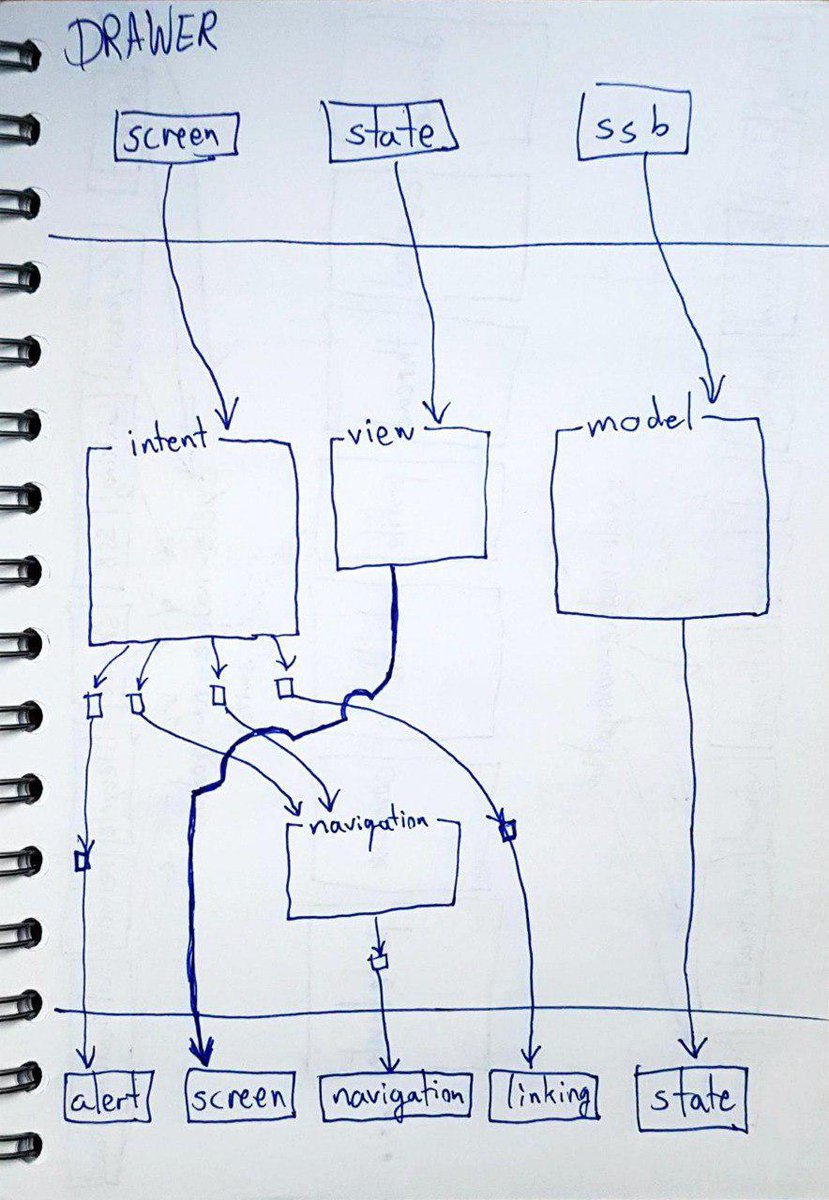 DRAWER
screen
state
ssb
intent
view
model
navigation
alert
screen
navigation
linking
state